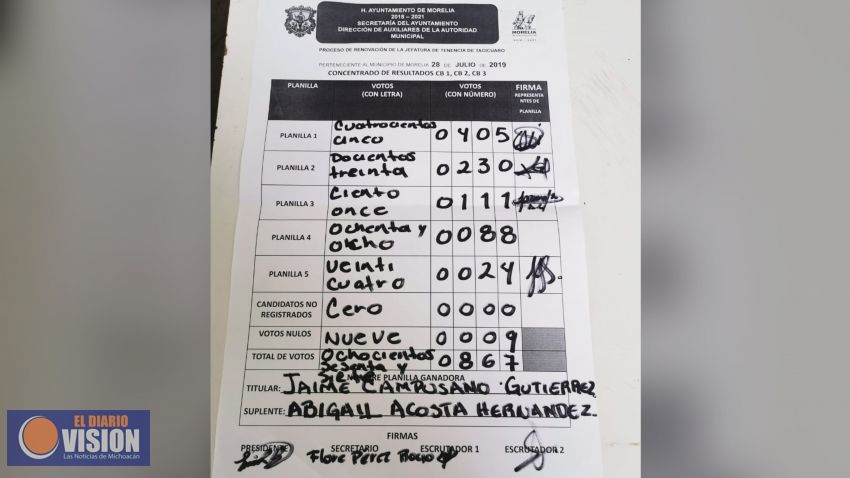 H. AYUNTAMIENTO DE MORELIA
2018 – 2021
SECRETARÍA DEL AYUNTAMIENTO
DIRECCIÓN DE AUXILIARES DE LA AUTORIDAD
MUNICIPAL
MORELIA
PROCESO DE RENOVACIÓN DE LA JEFATURA DE TENENCIA DE TACICUARO
PERTENECIENTE AL MUNICIPIO DE MORELIA 28 DE JULIO DE 2019
CONCENTRADO DE RESULTADOS CB 1, CB 2, CB 3
PLANILLA VOTOS (CON LETRA) VOTOS (CON NÚMERO) FIRMA REPRESENTA NTES DE PLANILLA
PLANILLA 1 Cuatrocientos cinco 0 4 0 5
PLANILLA 2 Docientos treinta 0 2 3 0
PLANILLA 3 Ciento once 0 1 1 1
PLANILLA 4 Ochenta y ocho 0 0 8 8
PLANILLA 5 Veinti cuatro 0 0 2 4
CANDIDATOS NO REGISTRADOS Cero 0 0 0 0
VOTOS NULOS NUEVE 0 0 0 9
TOTAL DE VOTOS Ochocientos sesenta y siete 0 8 6 7
PLANILLA GANADORA
TITULAR: JAIME CAMPUSANO GUTIERREZ
SUPLENTE: ABIGAIL ACOSTA HERNANDEZ.
FIRMAS
PRESIDENTE SECRETARIO ESCRUTADOR 1 ESCRUTADOR 2
Flore Perez
EL DIARIO
VISION
Las Noticias de Michoacán